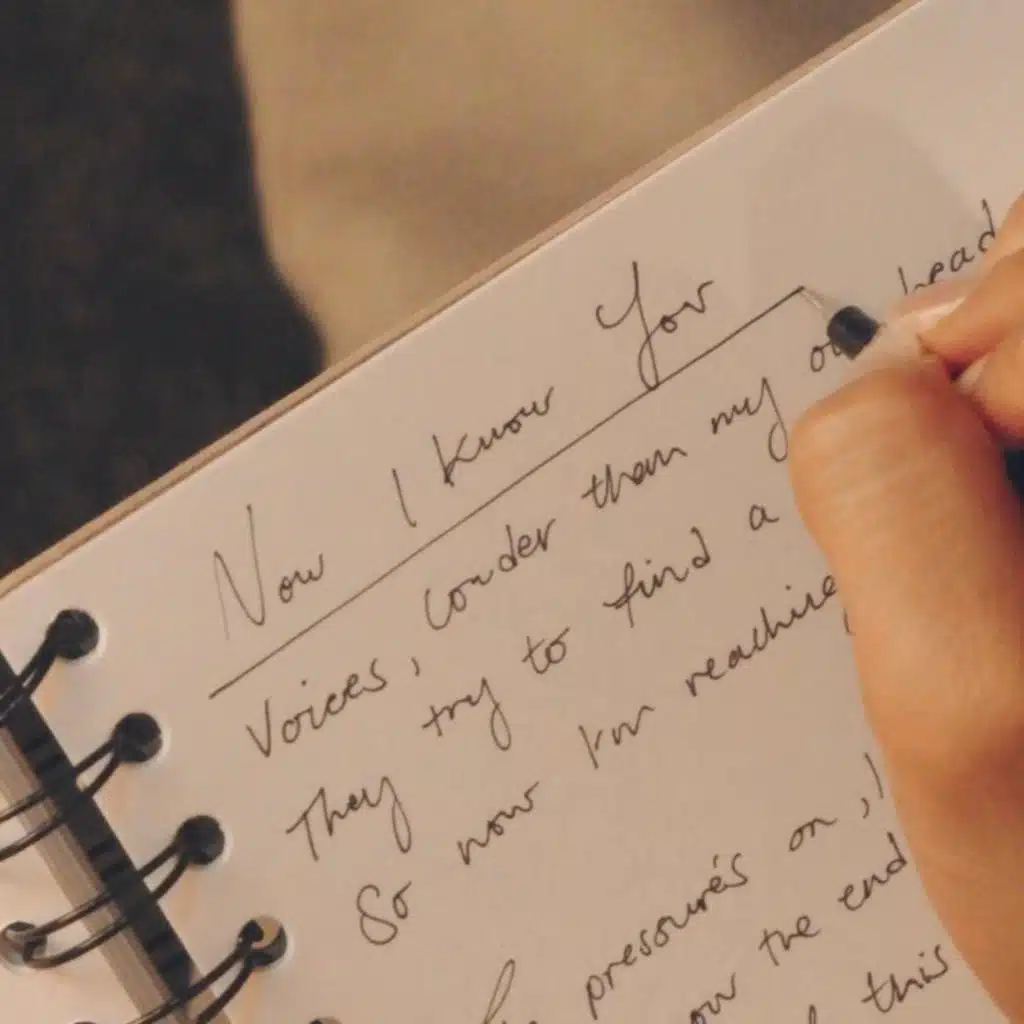 Now I know You
Voices, louder than my own head
They try to find a
So now I'm reaching
pressure's on, I
the end
this